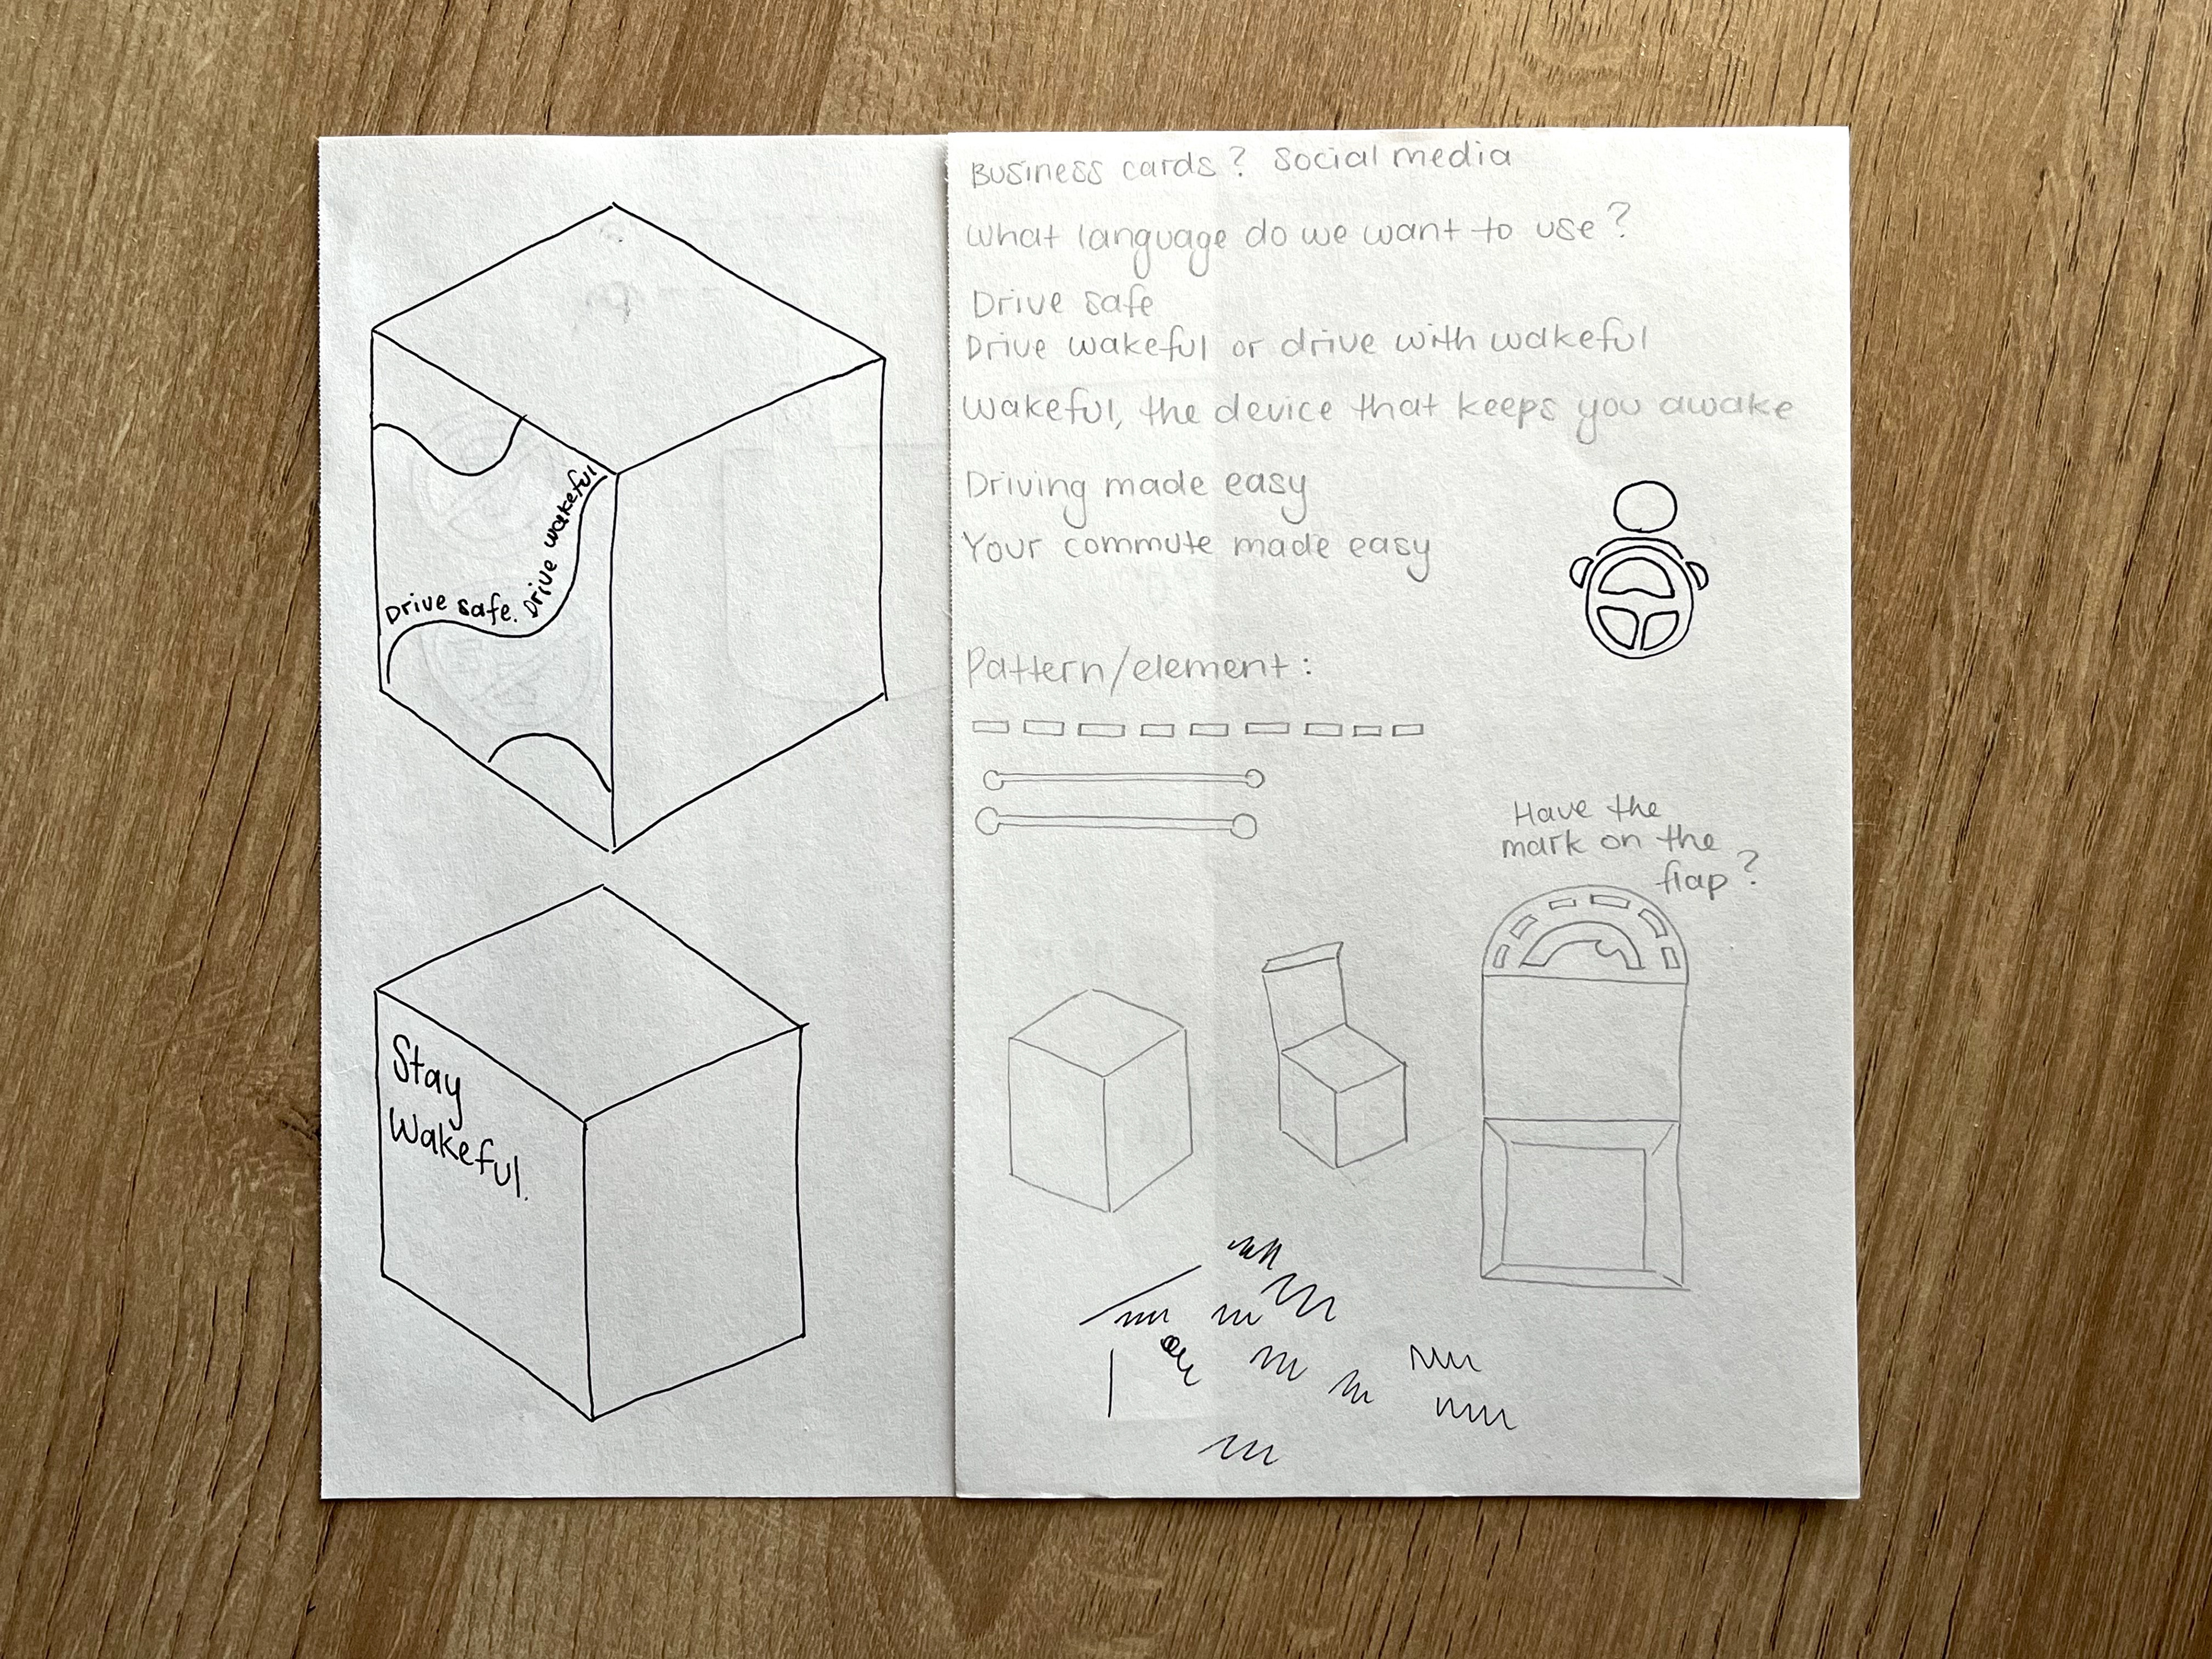 Drive safe. Drive wakeful
Stay
Wakeful.
Business cards? Social media
What language do we want to use?
Drive safe
Drive wakeful or drive with wakeful
Wakeful, the device that keeps you awake
Driving made easy
Your commute made easy
Pattern/element:
Have the
mark on the
flap?